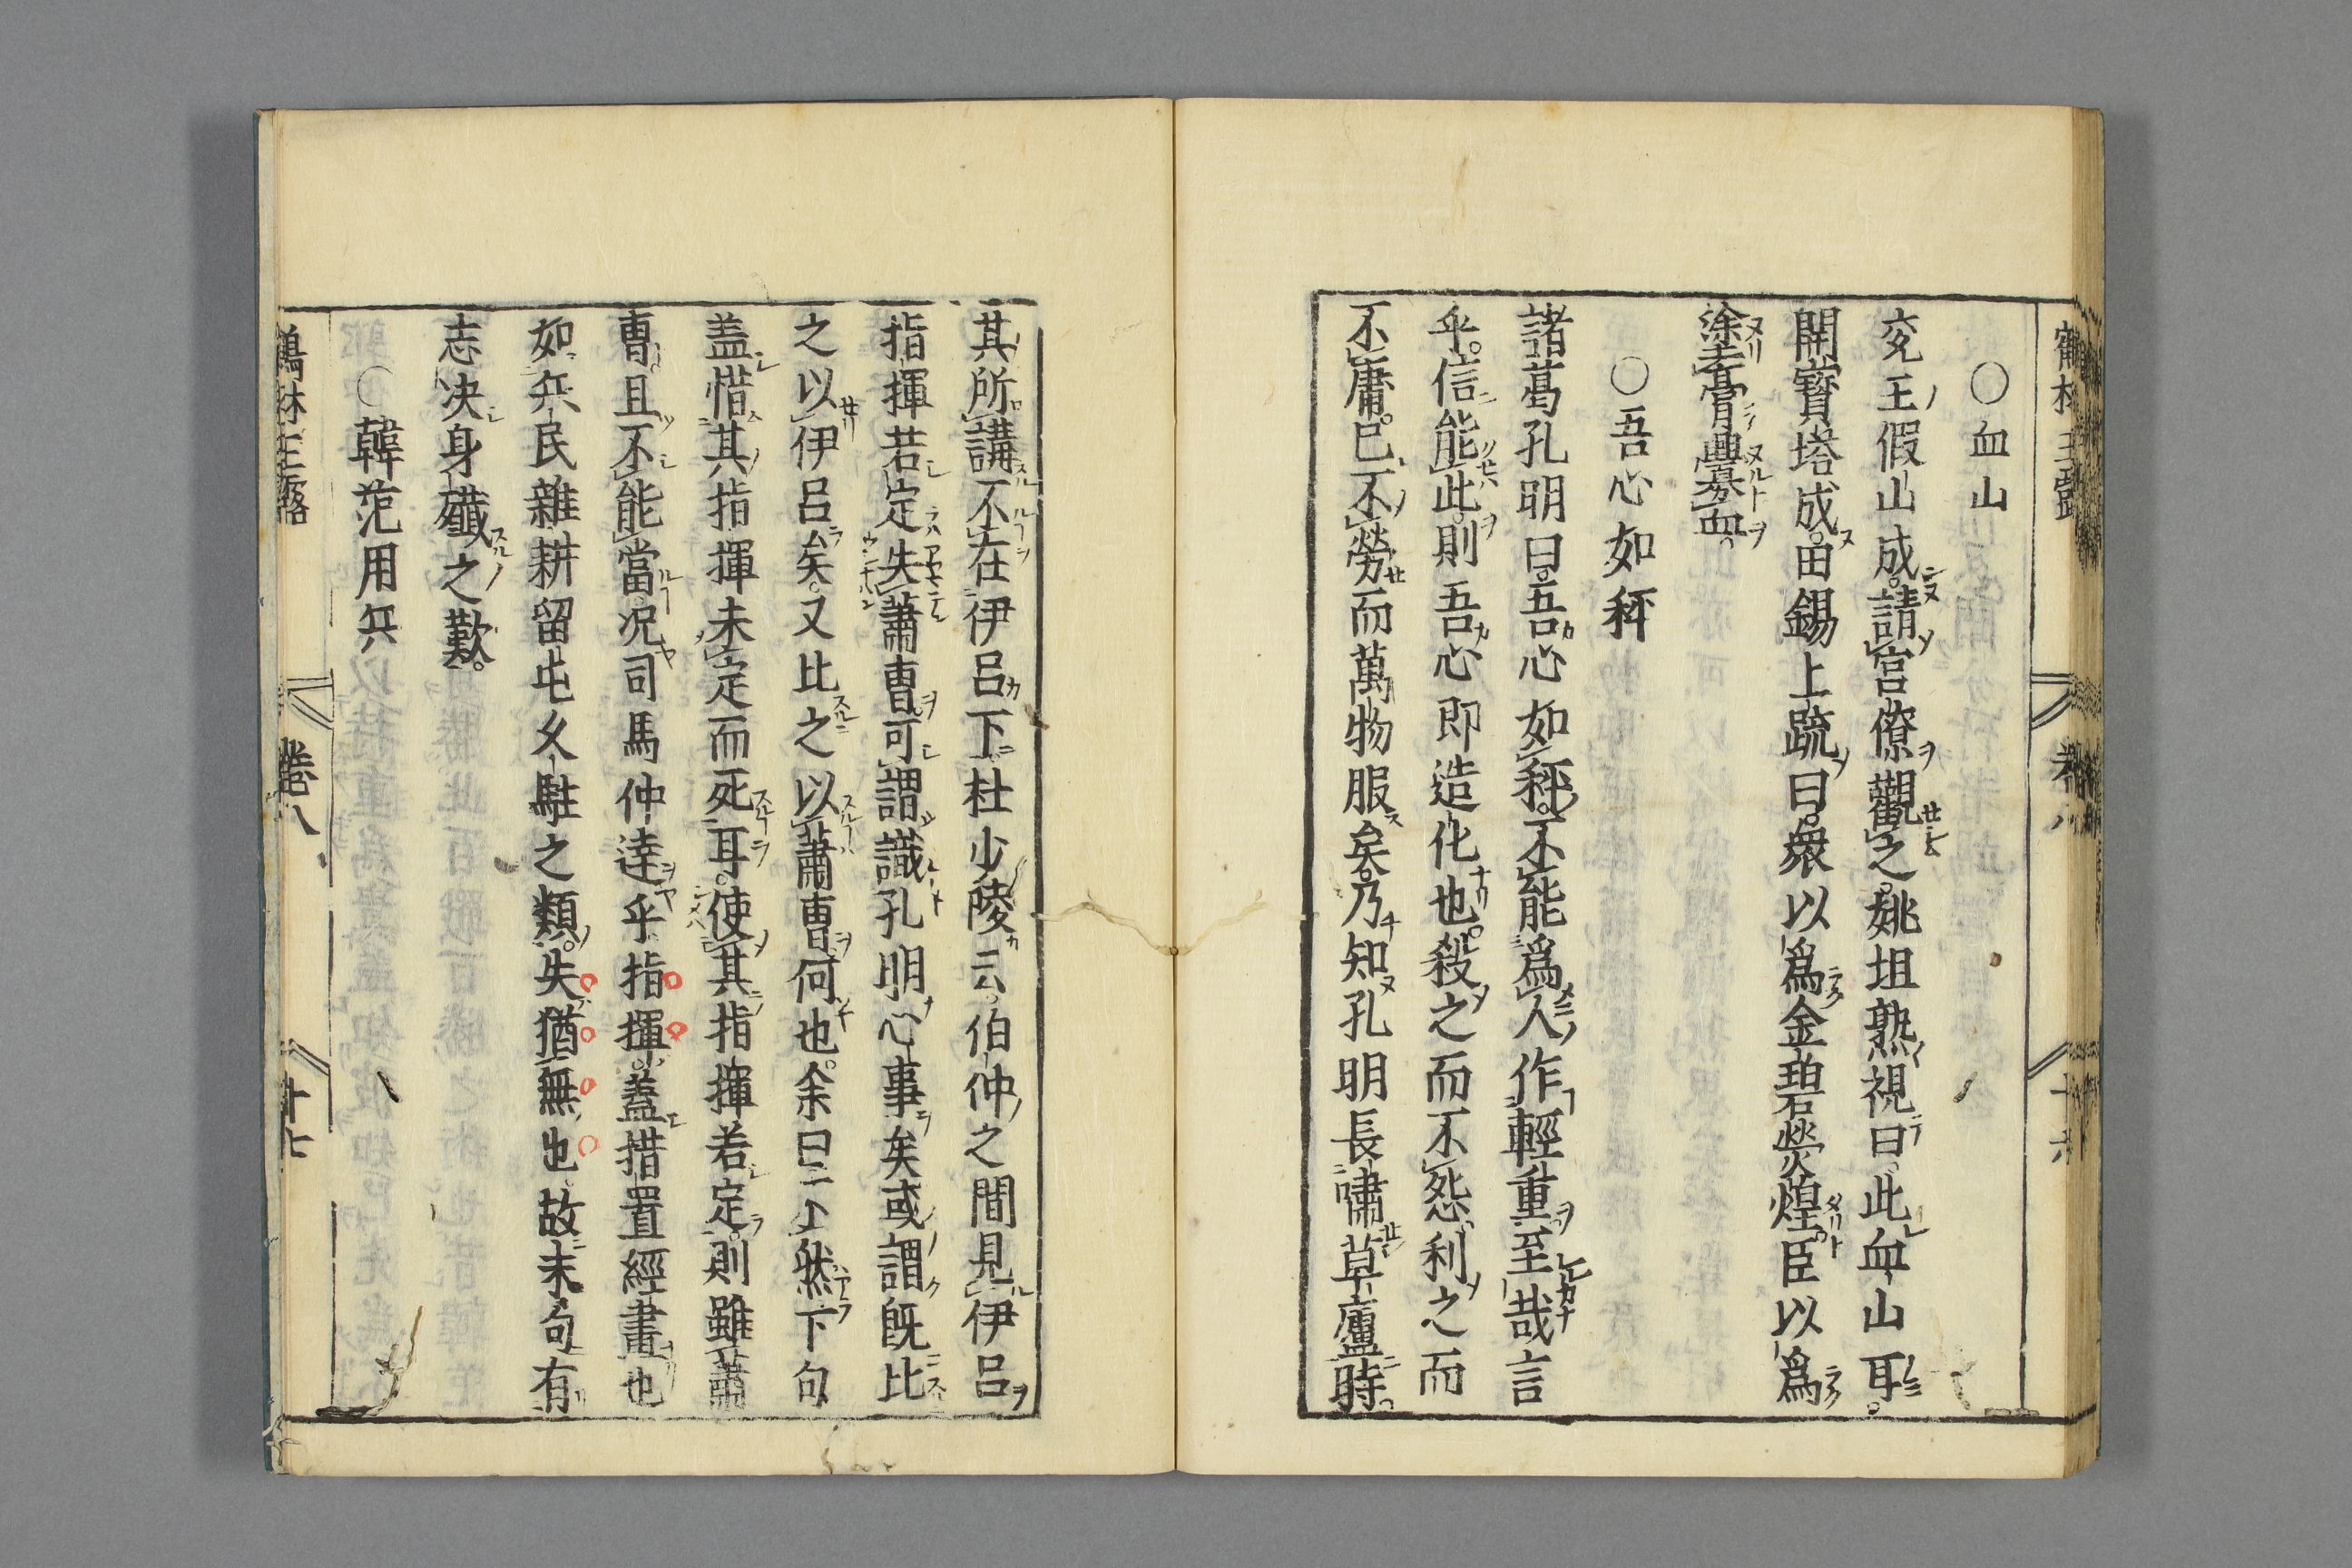 ○血山
兖王假山成請宮僚觀之姚坦熟視曰此血山耳
開寶塔成田錫上疏曰衆以爲金碧熒煌臣以爲
塗膏釁血
○吾心如秤
諸葛孔明曰吾心如秤不能爲人作輕重至哉言
乎信能此則吾心即造化也殺之而不怨利之而
不庸已不勞而萬物服矣乃知孔明長嘯草廬時
其所講不在伊呂下杜少陵云伯仲之間見伊呂
指揮若定失蕭曹可謂識孔明心事矣或謂既比
之以伊呂矣又比之以蕭曹何也余曰不然下句
盖惜其指揮未定而死耳使其指揮若定則雖蕭
曹且不能當况司馬仲達乎指揮蓋措置經畫也
如兵民雜耕留屯久駐之類失猶無也故末句有
志决身殲之歎
○韓范用兵
鶴林玉露
卷八
十七